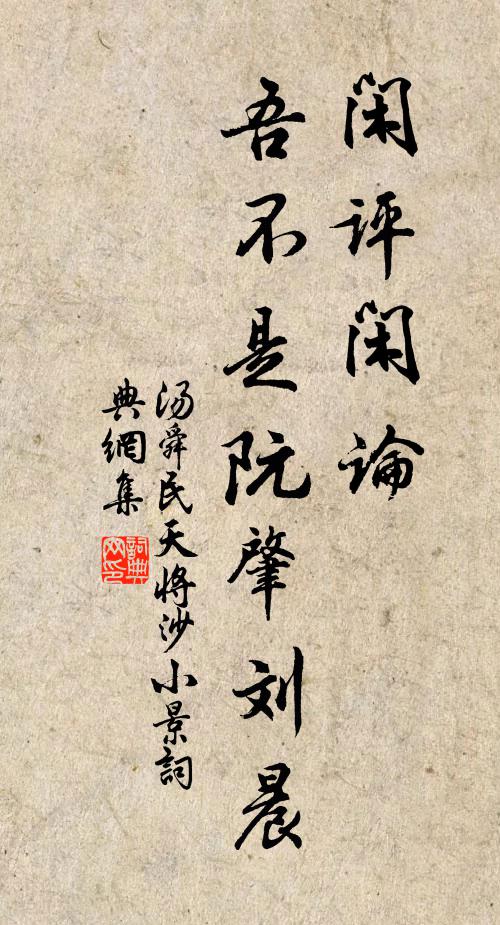 闲评闲论
吾不是阮肇刘晨
汤舜民天将沙小景詞
典網集
詞典
网印